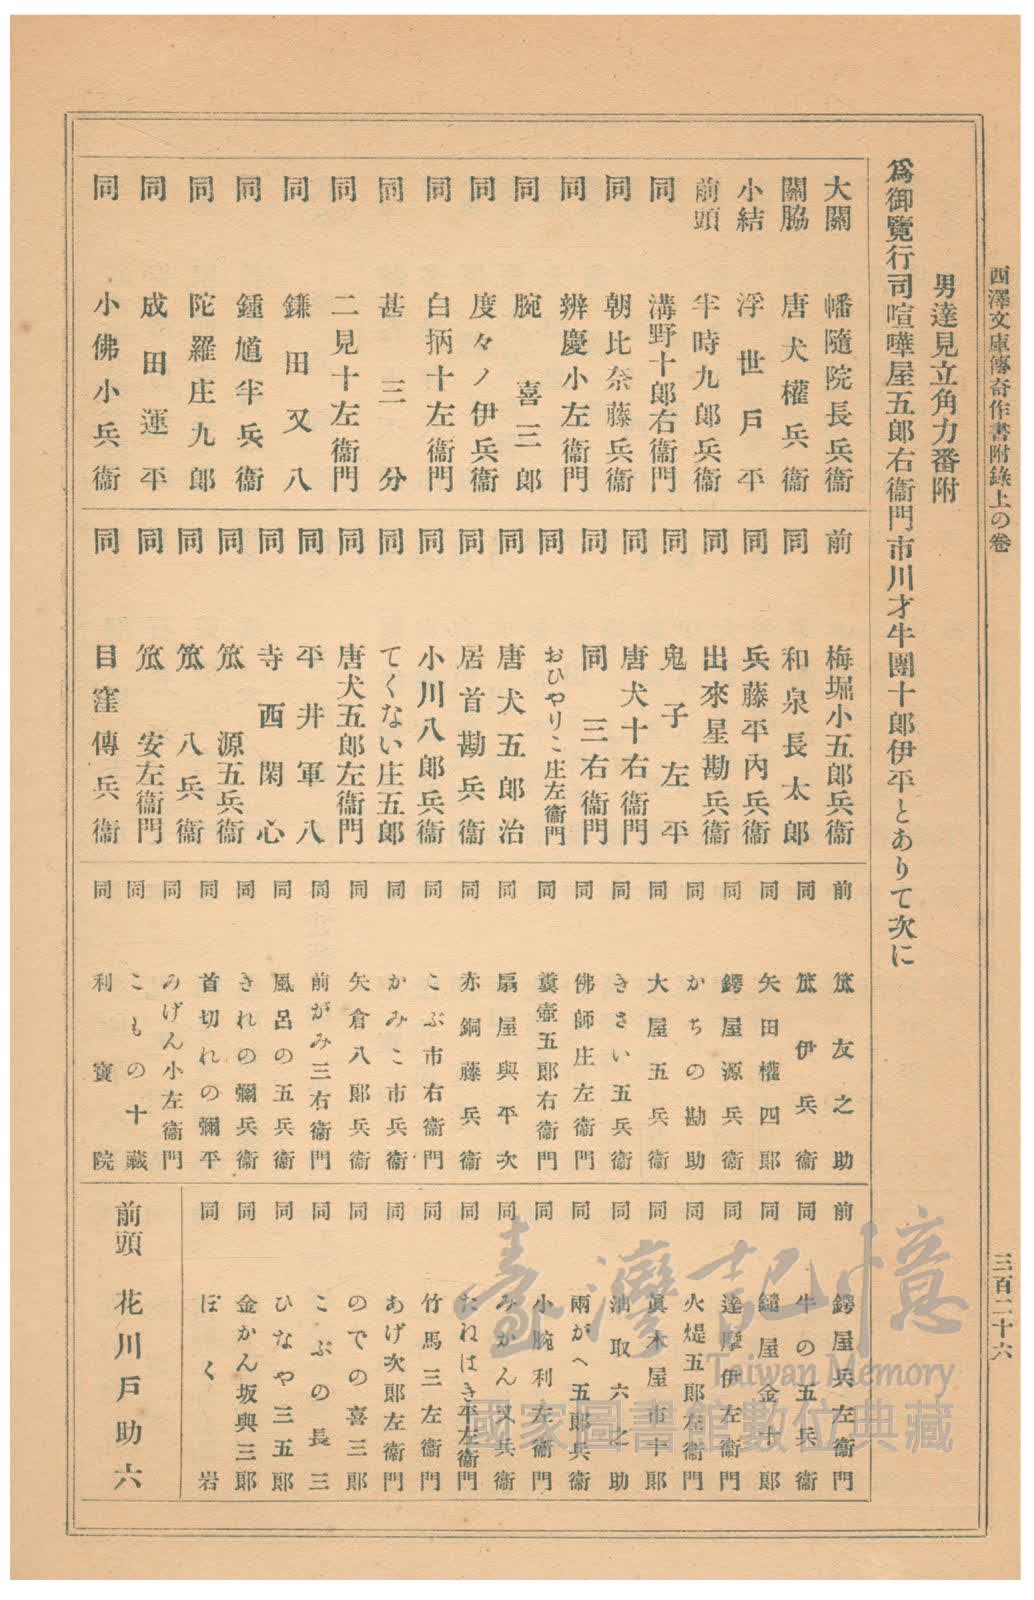 西澤文庫傳奇作書附錄上の卷
三百二十六
男達見立角力番附
爲御覽行司喧嘩屋五郎右衞門市川才牛團十郎伊平とありて次に
大關 幡隨院長兵衞
關脇 唐犬權兵衞
小結 浮世戶平
前頭 半時九郎兵衞
同 溝野十郎右衞門
同 朝比奈藤兵衞
同 辨慶小左衞門
同 腕喜三郎
同 度々ノ伊兵衞
同 白柄十左衞門
同 甚三分
同 二見十左衞門
同 鎌田又八
同 鍾馗半兵衞
同 陀羅庄九郎
同 成田運平
同 小佛小兵衞
前 梅堀小五郎兵衞
同 和泉長太郎
同 兵藤平內兵衞
同 出來星勘兵衞
同 鬼子左平
同 唐犬十右衞門
同 同三右衞門
同 おひやりこ庄左衞門
同 唐犬五郎治
同 居首勘兵衞
同 小川八郎兵衞
同 てくない庄五郎
同 唐犬五郎左衞門
同 平井軍八
同 寺西閑心
同 笊源五兵衞
同 笊八兵衞
同 笊安左衞門
同 目窪傳兵衞
前 笊友之助
同 笊伊兵衞
同 矢田權四郎
同 鍔屋源兵衞
同 かちの勘助
同 大屋五兵衞
同 きさい五兵衞
同 佛師庄左衞門
同 糞壷五郎右衞門
同 扇屋與平次
同 赤銅藤兵衞
同 こぶ市右衞門
同 かみこ市兵衞
同 矢倉八郎兵衞
同 前がみ三右衞門
同 風呂の五兵衞
同 きれの彌兵衞
同 首切れの彌平
同 みげん小左衞門
同 こもの十藏
同 利寳院
前 鍔屋兵左衞門
同 牛の五兵衞
同 鑓屋金十郎
同 達摩伊左衞門
同 火煶五郎左衞門
同 眞木屋市十郎
同 油取六之助
同 兩がへ五郎兵衞
同 小腕利左衞門
同 みかん又兵衞
同 たねはき平左衞門
同 竹馬三左衞門
同 あげ次郎左衞門
同 のでの喜三郎
同 こぶの長三
同 ひなや三五郎
同 金かん坂與三郎
同 ぼく岩
前頭 花川戶助六
臺灣記憶
Taiwan Memory
國家圖書館數位典藏